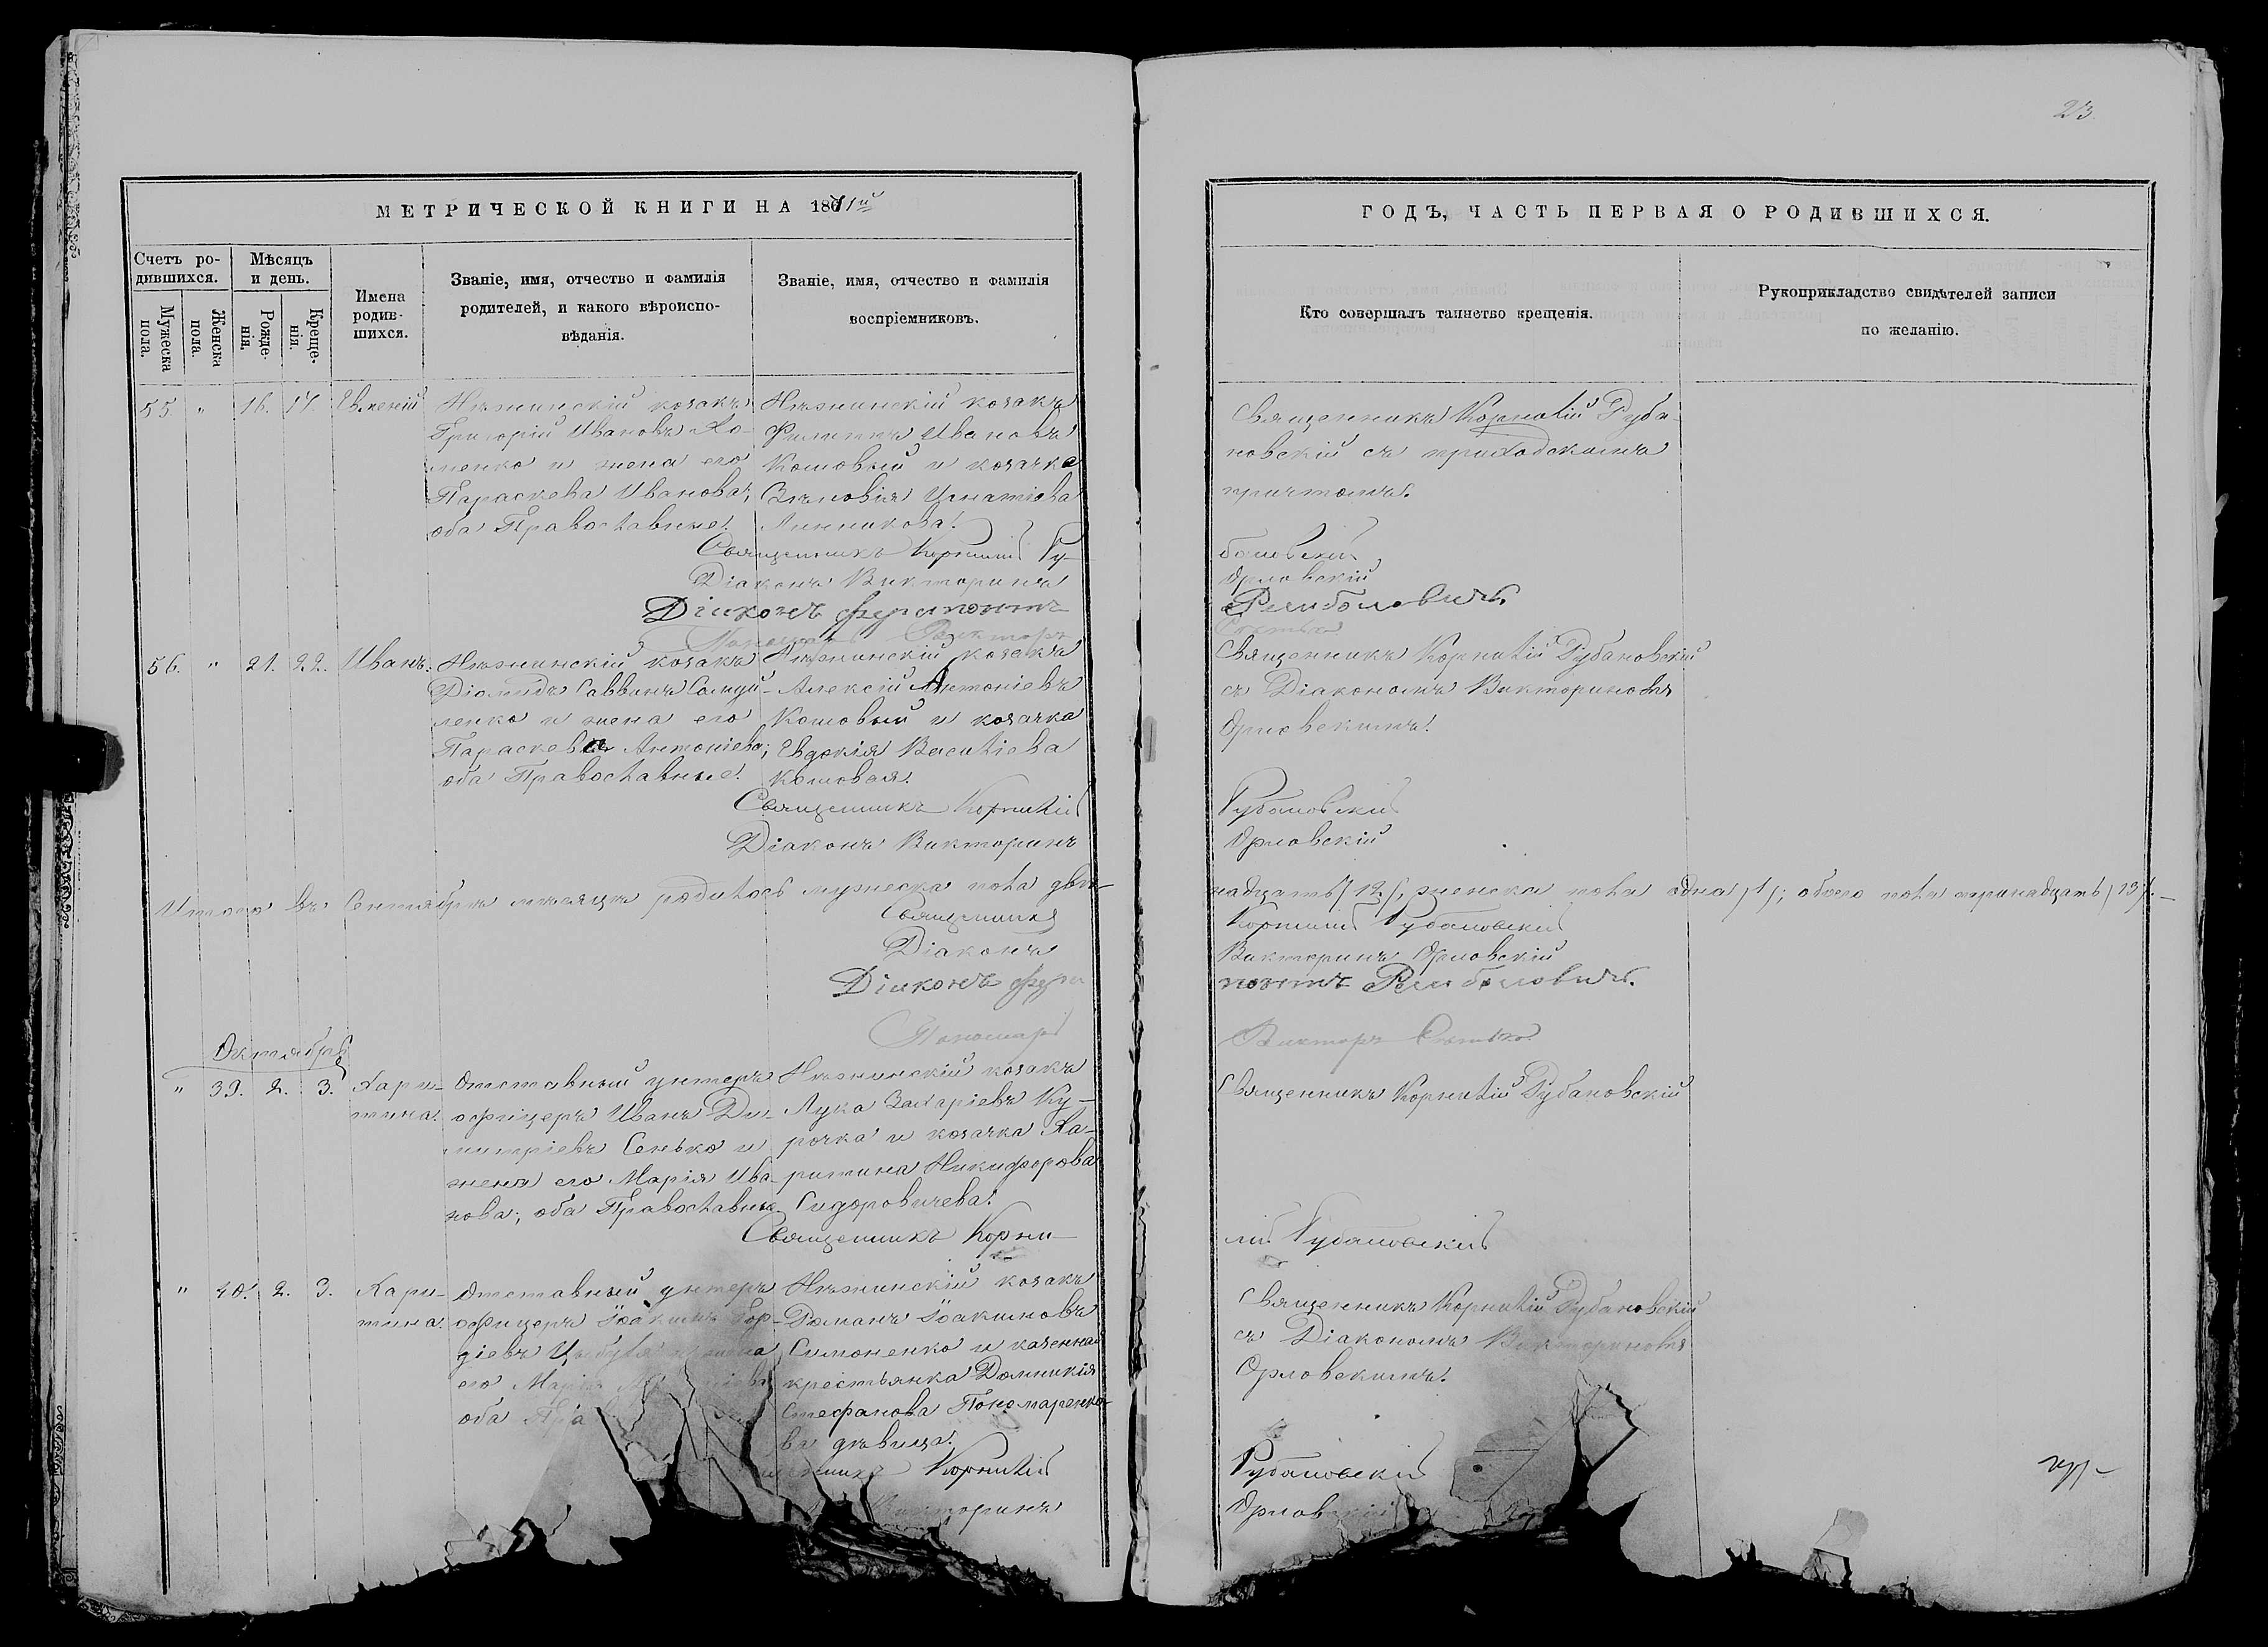 23
МЕТРИЧЕСКОЙ КНИГИ НА 1871й
ГОДЪ, ЧАСТЬ ПЕРВАЯ О РОДИВШИХСЯ.
Счетъ родившихся.
Мужеска пола.
Женска пола.
Мѣсяцъ и день.
Рожденія.
Крещенія.
Имена родившихся.
Званіе, имя, отчество и фамилія
родителей, и какого вѣроиспо-
вѣданія.
Званіе, имя, отчество и фамилія
воспріемниковъ.
Кто совершалъ таинство крещенія.
Рукоприкладство свидѣтелей записи
по желанію.
55. " 16. 17
Нѣжинскій козакъ
Григорій Ивановъ Хо-
менко и жена его
Параскева Иванова;
оба Православные.
Нѣжинскій козакъ
Филиппъ Ивановъ
Кошовый и козачка
Зѣновія Игнатіева
Анникова.
Священникъ Корнилій Руба-
новскій съ приходскимъ
причтомъ.
Священникъ Корнилій Ру-
бановскій
Діаконъ Викторинъ
Орловскій
Діаконъ Ферапонтъ
Рамболовичъ.
Пономарь Викторъ
56. " 21. 22. Иванъ.
Нѣжинскій козакъ
Діомидъ Саввинъ Самуй-
ленко и жена его
Параскева Антоніева;
оба Православные.
Нѣжинскій козакъ
Алексій Антоніевъ
Кошовый и козачка
Евдокія Василіева
Кошовая.
Священникъ Корнилій Рубановскій
съ Діакономъ Викториномъ
Орловскимъ.
Священникъ Корнилій
Рубановскій
Діаконъ Викторинъ
Орловскій
Итого въ Сентябрѣ мѣсяцѣ родилось мужеска пола двѣ-
надцать /12/, женска пола одна /1/; обоего пола тринадцать /13/.
Священникъ
Корнилій Рубановскій
Діаконъ
Викторинъ Орловскій
Діаконъ Фера
понтъ Рамболовичъ.
Пономарь
Викторъ
Октябрь
" 39. 2. 3. Хари-
тина.
Отставный унтеръ
офицеръ Иванъ Ди-
митріевъ Сенько и
жена его Марія Ива-
нова; оба Православные
Нѣжинскій козакъ
Лука Захаріевъ Ку-
рочка и козачка Ха-
ритина Никифорова
Сидоровичева.
Священникъ Корнилій Рубановскій
Священникъ Корни-
лій Рубановскій
" 40. 2. 3. Хари-
тина.
Отставный унтеръ
офицеръ Іоакимъ Гор-
діевъ
его Марія
оба Пра
Нѣжинскій козакъ
Романъ Іоакимовъ
Симоненко и казенная
крестьянка Домникія
Стефанова Пономаренко-
ва дѣвица.
Священникъ Корнилій Рубановскій
съ Діакономъ Викториномъ
Орловскимъ.
Корнилій
Рубановскій
Викторинъ
Орловскій